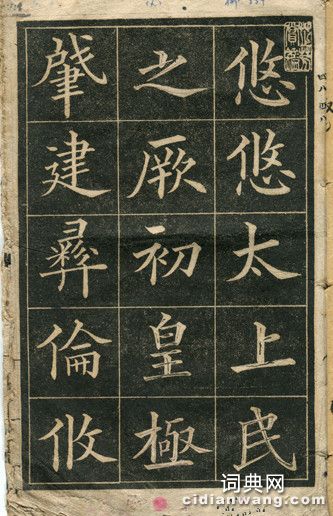 悠悠太上民
之厥初皇極
肇建彝倫攸
词典网
cidianwang.com